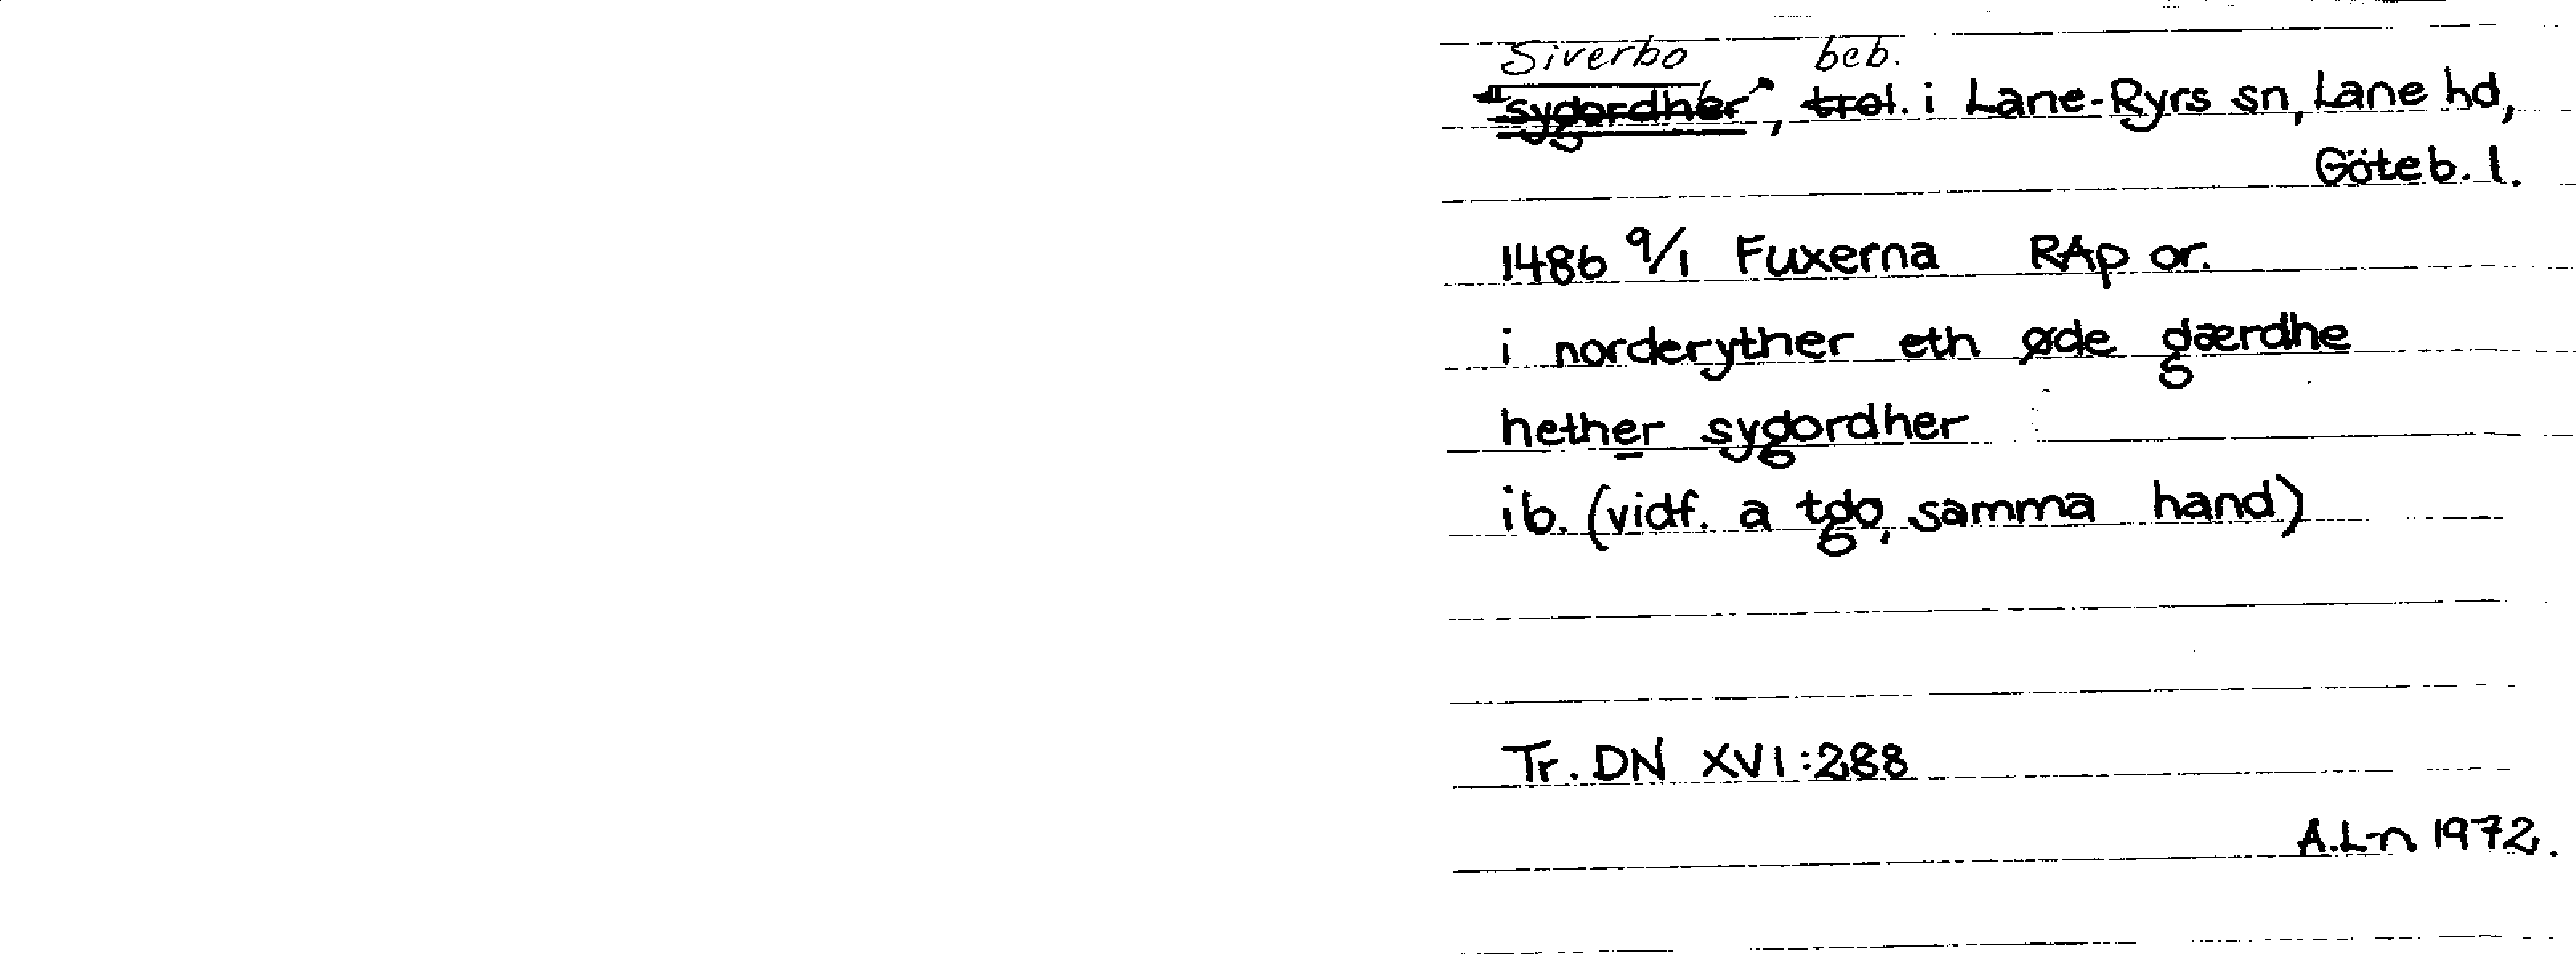 Siverbo beb.
"sygordher", trol. i Lane-Ryrs sn, Lane hd,
Göteb. l.
1486 9/1 Fuxerna RAp or.
i norderyther eth øde gærdhe
hether sygordher
ib. (vidf. a tgo, samma hand)
Tr. DN XVI:288
A.L-n 1972.